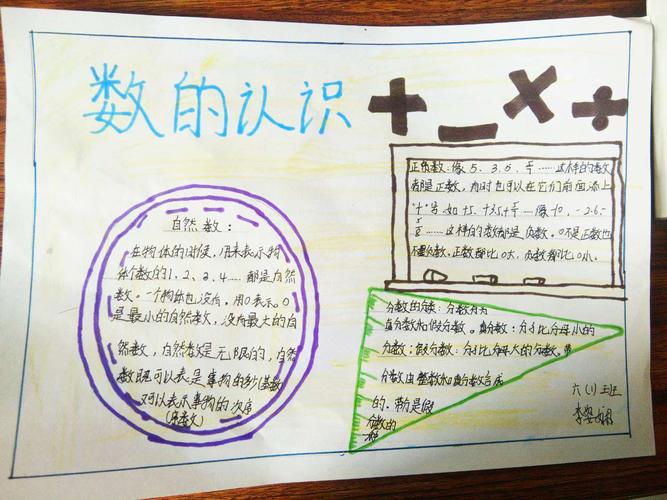 数的认识
+ － × ÷
自然数：
在物体的时候，用来表示物
体个数的1、2、3、4……都是自然
数。一个物体也没有，用0表示。0
是最小的自然数，没有最大的自
然数，自然数是无限的，自然
数既可以表是事物的(基数)
又可以表示事物的次序
(序数)
正负数：像5、3.5、……这样的数
都是正数，有时也可以在它们前面添上
"+"号，如+5、+3.5、……像-10、-2.6、
……这样的数都是负数。0不是正数也
不是负数，正数都比0大，负数都比0小。
分数的分类：分数分为
真分数和假分数。真分数：分子比分母小的
分数；假分数：分子比分母大的分数。带
分数由整数和真分数合成
的。带分是假
分数的
一种
六(1)班